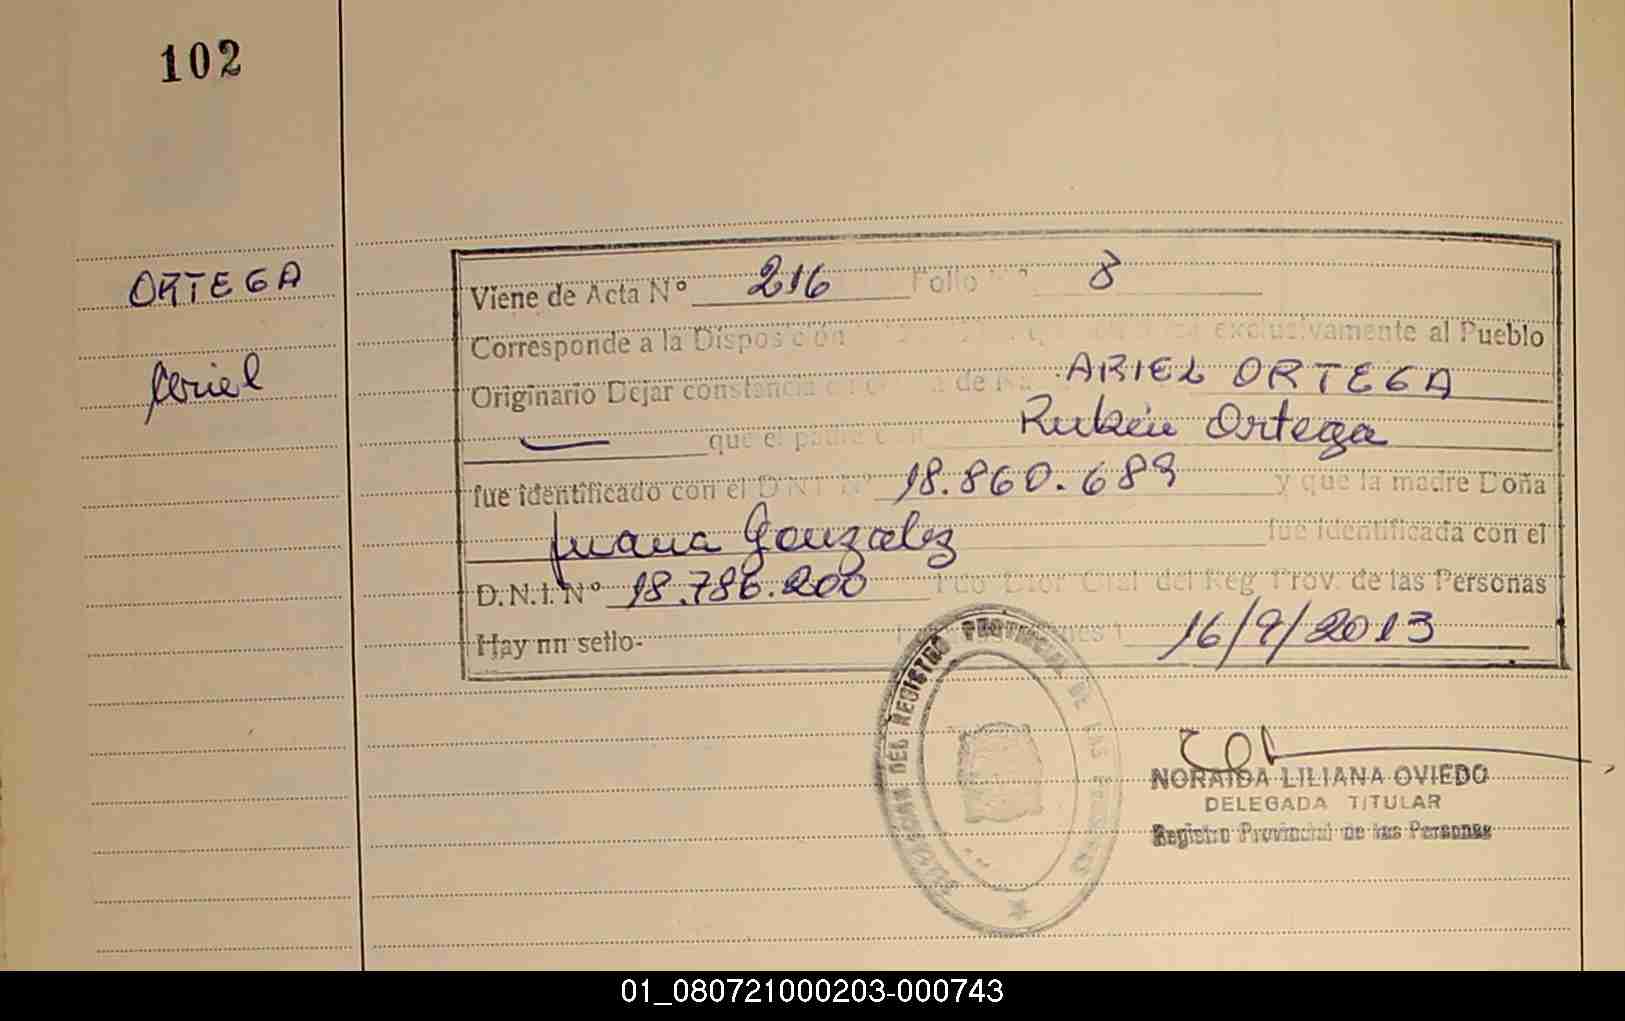 102
ORTEGA
Ariel
Viene de Acta N° 216 Folio N° 8
Corresponde a la Disposición exclusivamente al Pueblo
Originario Dejar constancia de ARIEL ORTEGA
que el padre Rubén Ortega
fue identificado con el D.N.I. N° 18.860.689 y que la madre Doña
Juana Gonzalez fue identificada con el
D.N.I. N° 18.786.200 Fdo Dtor Gral del Reg Prov. de las Personas
Hay nn sello- 16/9/2013
DEL REGISTRO PROVINCIAL DE LAS PERSONAS
NORAIDA LILIANA OVIEDO
DELEGADA TITULAR
Registro Provincial de las Personas
01_080721000203-000743